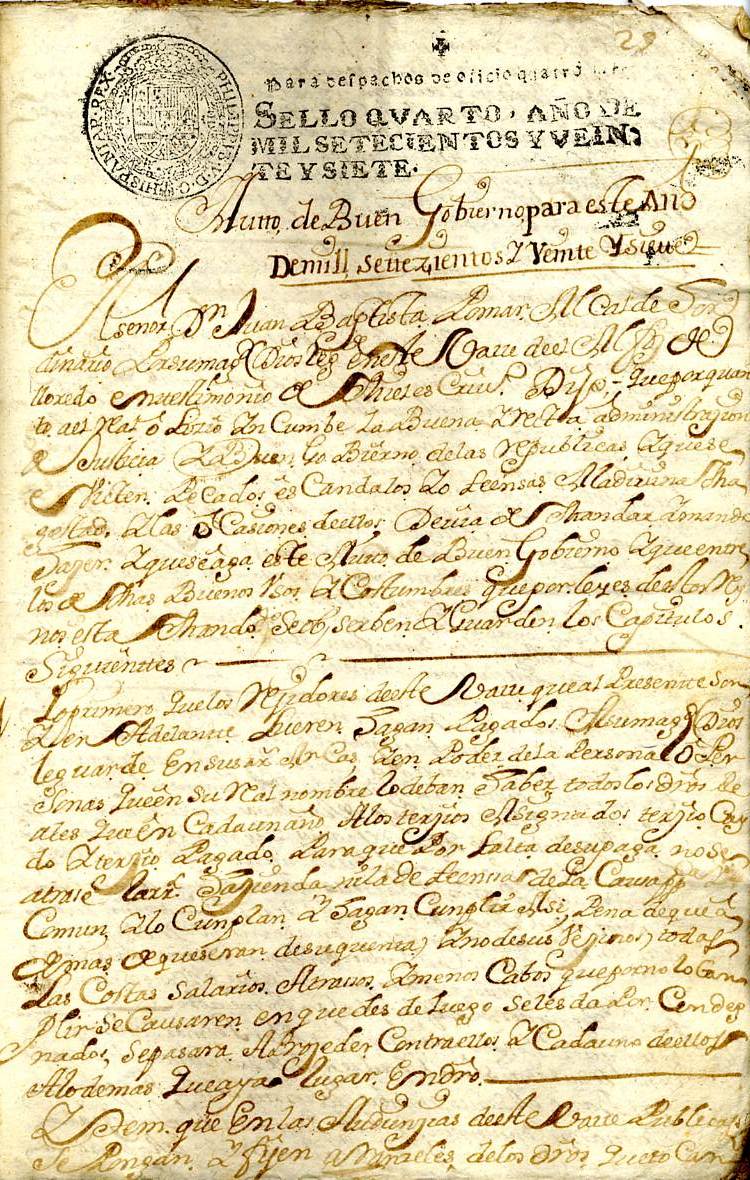 29
PHILIPPUS V D G HISPANIAR REX
Para despachos de oficio quatro
SELLO QVARTO, AÑO DE
MIL SETECIENTOS Y VEIN,
TE Y SIETE.
Autto de Buen Gobierno para este Año
De mill settezientos Y Veinte Y siette
El senor Dn Juan Baptista Lomar Alcalde Hor
dinario Por su magd Dios leg en este Vaue de el Alfoz de
lloredo en testimonio de Mi el es Crivo Dijo que por quan
to a el Real o fizio Yn Cumbe La Buena Y recta administrazion
de Justicia Y Buen Go Bierno de las republicas Y que se
e Viten Pecados es Candalos Y o feensas A la divina Ma
gestad, Y las o Casiones de ellos Devia de Mandar Y mando
Hazer Y que se aga este Autto de Buen Gobierno Y que entre
los de Mas Buenos Vsos Y Costumbres que por leyes de estos Rey
nos esta Mando Se ob serben Y Guarden los Capitulos
Siguienttes
Lo primero que los Rejidores de este Vaue que al Presente Son
Y en Adelante fueren Hagan Pagados A su magd Dios
le guarde En sus Ar Cas Y en Poder de la Persona o Per
sonas que en Su Real nombre lo deban Haber todos los dros Re
ales que en Cada un año A los terzios Asignados terzio Cay
do Y terzio Pagado Para que Por falta de su paga no se
atrase la rl Hazienda ni la de feensa de La Caussa
Comun Y lo Cunplan Y Hagan Cunplir Asi Pena de que a
demas de que seran de su quenta, Y no de sus Vezinos, todas
Las Costas Salarios Atrasos Y menos Cabos que por no lo Cun
plir Se Causaren en que des de luego Se les da Por Conde
nados, Se pasara A Prozeder Contra ellos Y Cada uno de ellos
A lo demas que aya lugar En dro.
Y Dem que En las Audienzias de este Vaue Publicas
Se Pongan Y fijen Aranzeles de los dros que to Can